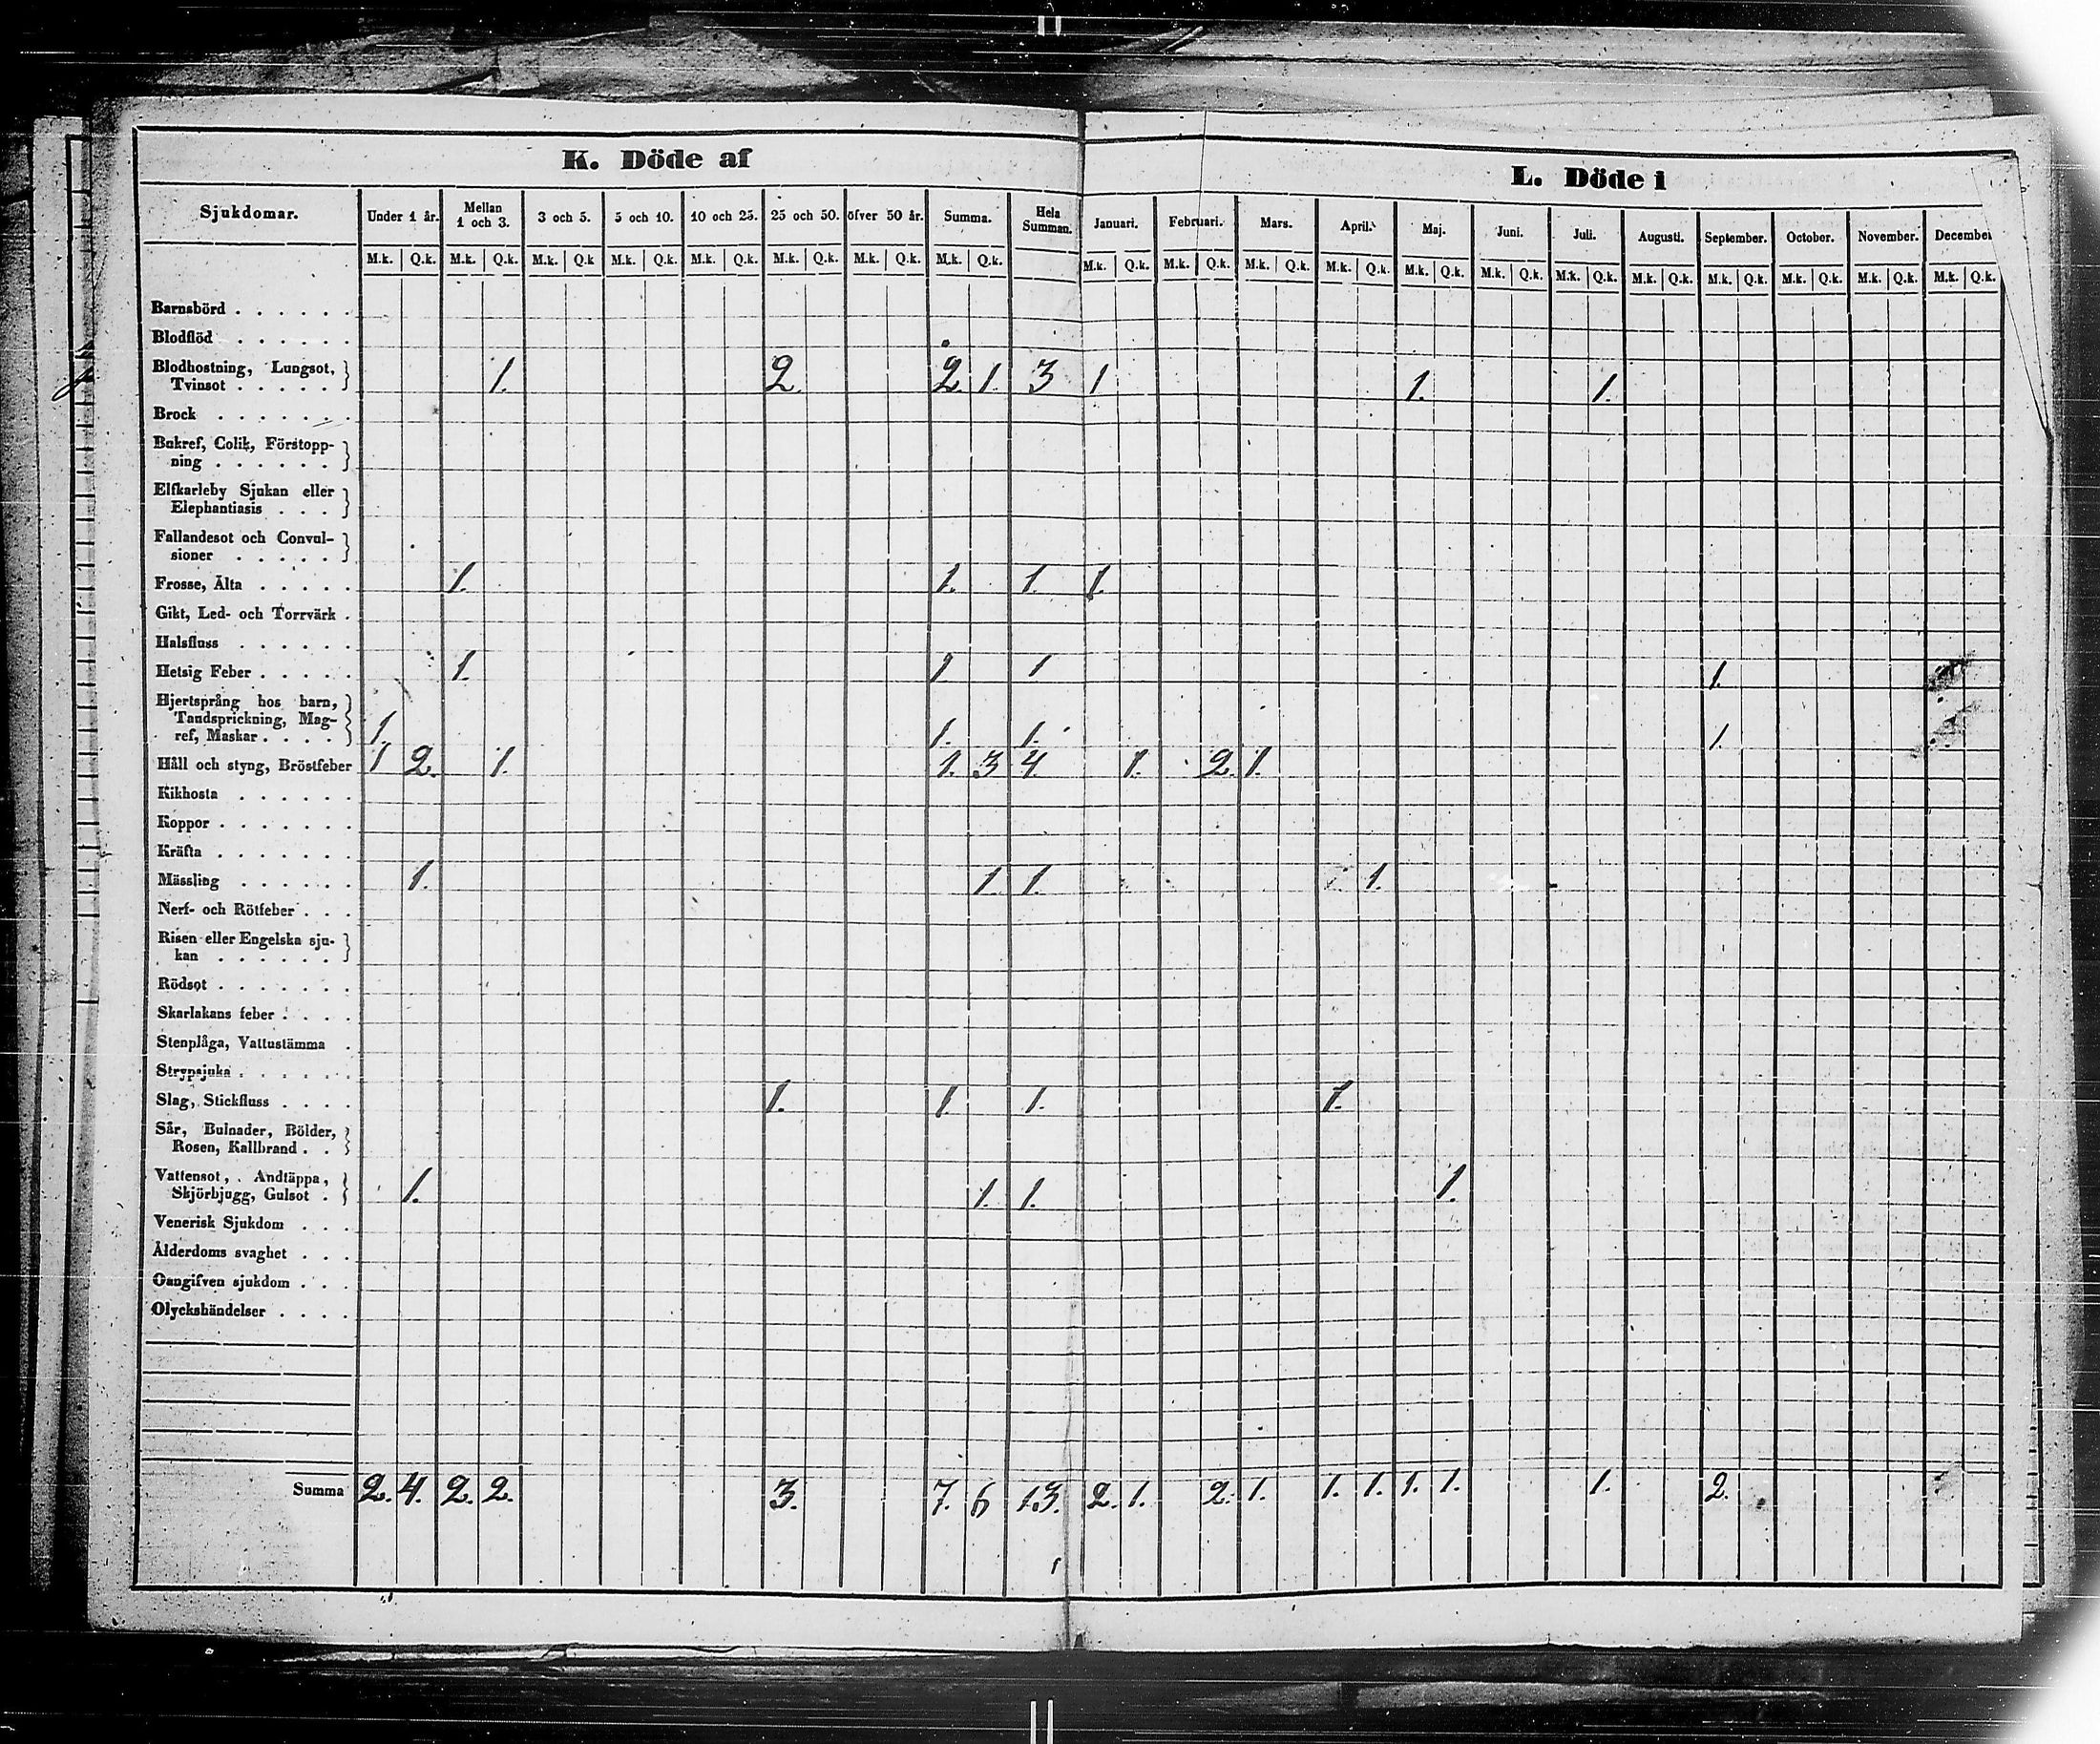 K. Döde af
L. Döde i
Sjukdomar. Under 1 år. Mellan 1 och 3. 3 och 5. 5 och 10. 10 och 25. 25 och 50. öfver 50 år. Summa. Hela Summan. Januari. Februari. Mars. April. Maj. Juni. Juli. Augusti. September. October. November. December
M.k. Q.k. M.k. Q.k. M.k. Q.k M.k. Q.k. M.k. Q.k. M.k. Q.k. M.k. Q.k. M.k. Q.k. M.k. Q.k. M.k. Q.k. M.k. Q.k. M.k. Q.k. M.k. Q.k. M.k. Q.k. M.k. Q.k. M.k. Q.k. M.k. Q.k. M.k. Q.k. M.k. Q.k. M.k. Q.k.
Barnsbörd . . . . . .
Blodflöd . . . . . .
Blodhostning, Lungsot,
Tvinsot . . . . . 1. 2 2 1. 3 1 1. 1.
Brock . . . . . . .
Bukref, Colik, Förstopp-
ning . . . . . .
Elfkarleby Sjukan eller
Elephantiasis . . .
Fallandesot och Convul-
sioner . . . . .
Frosse, Älta . . . . . 1. 1. 1. 1.
Gikt, Led- och Torrvärk .
Halsfluss . . . . . .
Hetsig Feber . . . . . 1. 1 1 1.
Hjertsprång hos barn,
Tandsprickning, Mag-
ref, Maskar . . . . 1. 1. 1. 1.
Håll och styng, Bröstfeber 1 2. 1. 1. 3 4. 1. 2. 1.
Kikhosta . . . . . .
Koppor . . . . . . .
Kräfta . . . . . . .
Mässling . . . . . . 1. 1. 1. 1.
Nerf- och Rötfeber . . .
Risen eller Engelska sju-
kan . . . . . .
Rödsot . . . . . . .
Skarlakans feber . . . .
Stenplåga, Vattustämma .
Strypsjuka . . . . . .
Slag, Stickfluss . . . . 1. 1. 1. 1.
Sår, Bulnader, Bölder,
Rosen, Kallbrand . .
Vattensot, Andtäppa,
Skjörbjugg, Gulsot . 1. 1. 1. 1.
Venerisk Sjukdom . . .
Ålderdoms svaghet . . .
Oangifven sjukdom . . .
Olyckshändelser . . . .
Summa 2. 4. 2. 2. 3. 7. 6 13. 2. 1. 2. 1. 1. 1. 1. 1. 1. 2.